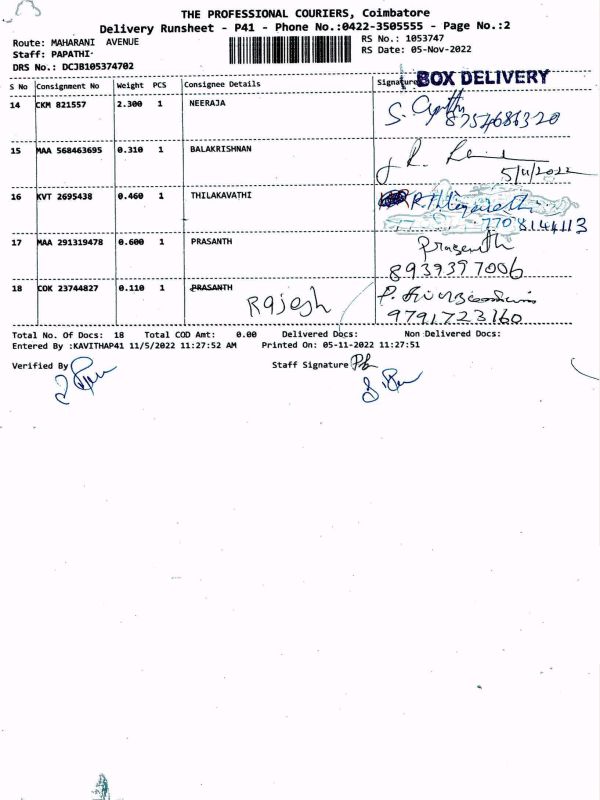 THE PROFESSIONAL COURIERS, Coimbatore
Delivery Runsheet - P41 - Phone No.:0422-3505555 - Page No.:2
Route: MAHARANI AVENUE
RS No.: 1053747
Staff: PAPATHI·
RS Date: 05-Nov-2022
DRS No.: DCJB105374702
S No Consignment No Weight PCS Consignee Details Signature BOX DELIVERY
14 CKM 821557 2.300 1 NEERAJA
15 MAA 568463695 0.310 1 BALAKRISHNAN
5/11/2022
16 KVT 2695438 0.460 1 THILAKAVATHI
17 MAA 291319478 0.600 1 PRASANTH Prasanth
8939397006
18 COK 23744827 0.110 1 PRASANTH
Rajesh
9791723160
Total No. Of Docs: 18 Total COD Amt: 0.00 Delivered Docs: Non Delivered Docs:
Entered By :KAVITHAP41 11/5/2022 11:27:52 AM Printed On: 05-11-2022 11:27:51
Verified By Staff Signature